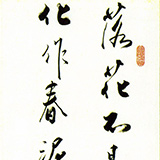 落花不是
化作春泥